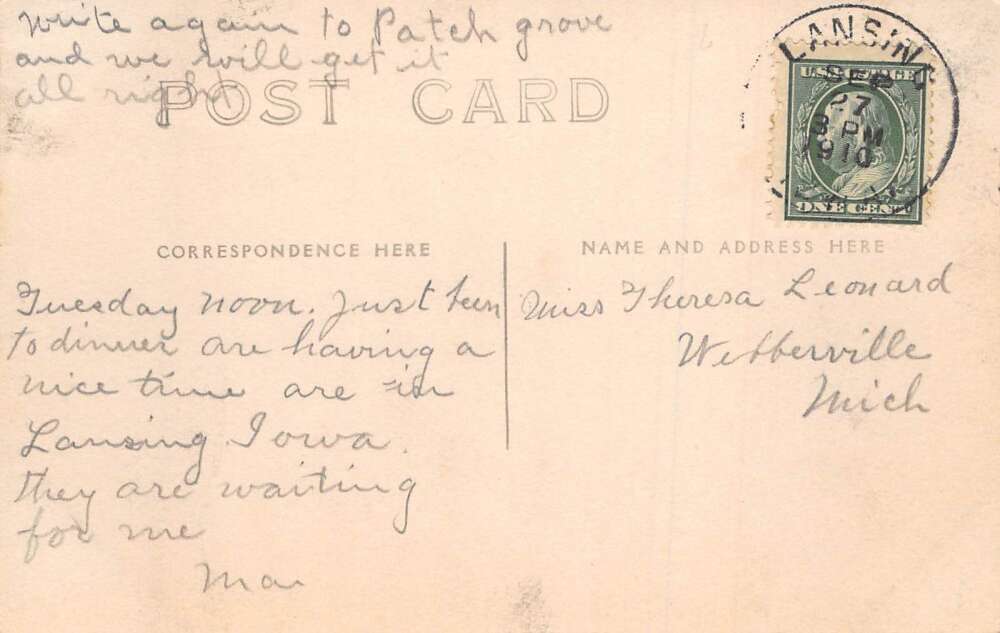 Write again to Patch grove
and we will get it
all right
POST CARD
LANSING
SEP
27
8 PM
1910
U.S. POSTAGE
ONE CENT
CORRESPONDENCE HERE
NAME AND ADDRESS HERE
Tuesday noon. Just been
to dinner are having a
nice time are in
Lansing Iowa.
they are waiting
for me
Ma
Miss Theresa Leonard
Webberville
Mich